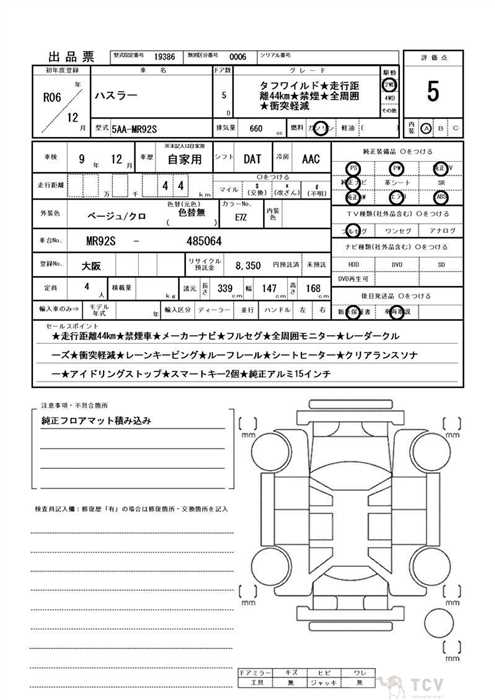 出品票 型式指定番号 19386 類別区分番号 0006 シリアル番号
初年度登録 車名 ドア数 グレード 駆動 評価点
R06 年 12 月
ハスラー
5 D
タフワイルド★走行距
離44km★禁煙★全周囲
★衝突軽減
2WD
4WD
その他
5
型式 5AA-MR92S 排気量 660 cc 燃料 ガソリン 軽油 ( ) 内装 A B C
車検 9 年 12 月 車歴 ※未記入は自家用 自家用 シフト DAT 冷房 AAC
純正装備品 〇をつける
PS PW 純正TV
純正ナビ 革シート SR
純正AW エアB ABS
走行距離 万 千 4 4 km
〇をつける
マイル $ (交換) * (改ざん) # (不明)
外装色 ベージュ/クロ 色替(元色) 色替無 ( ) カラーNo. E7Z 内装色
TV種類(社外品含む) 〇をつける
フルセグ ワンセグ アナログ
車台No. MR92S - 485064
ナビ種類(社外品含む) 〇をつける
HDD DVD SD
DVD再生可
登録No. 大阪 リサイクル預託金 8,350 円預託済 未預託
定員 4 人 積載量 kg 諸元 長さ 339 cm 幅 147 cm 高さ 168 cm
後日発送品 〇をつける
新車保証書 取扱説明書
輸入車のみ⇒ モデル年式 年 輸入区分 ディーラー 並行 ハンドル 左 右
セールスポイント
★走行距離44km★禁煙車★メーカーナビ★フルセグ★全周囲モニター★レーダークル
ーズ★衝突軽減★レーンキーピング★ルーフレール★シートヒーター★クリアランスソナ
ー★アイドリングストップ★スマートキー2個★純正アルミ15インチ
注意事項・不具合箇所
純正フロアマット積み込み
検査員記入欄：修復歴「有」の場合は修復箇所・交換箇所を記入
mm
mm
mm
mm
ドアミラー キズ ヒビ ワレ
工具 無 ジャッキ 無
TCV